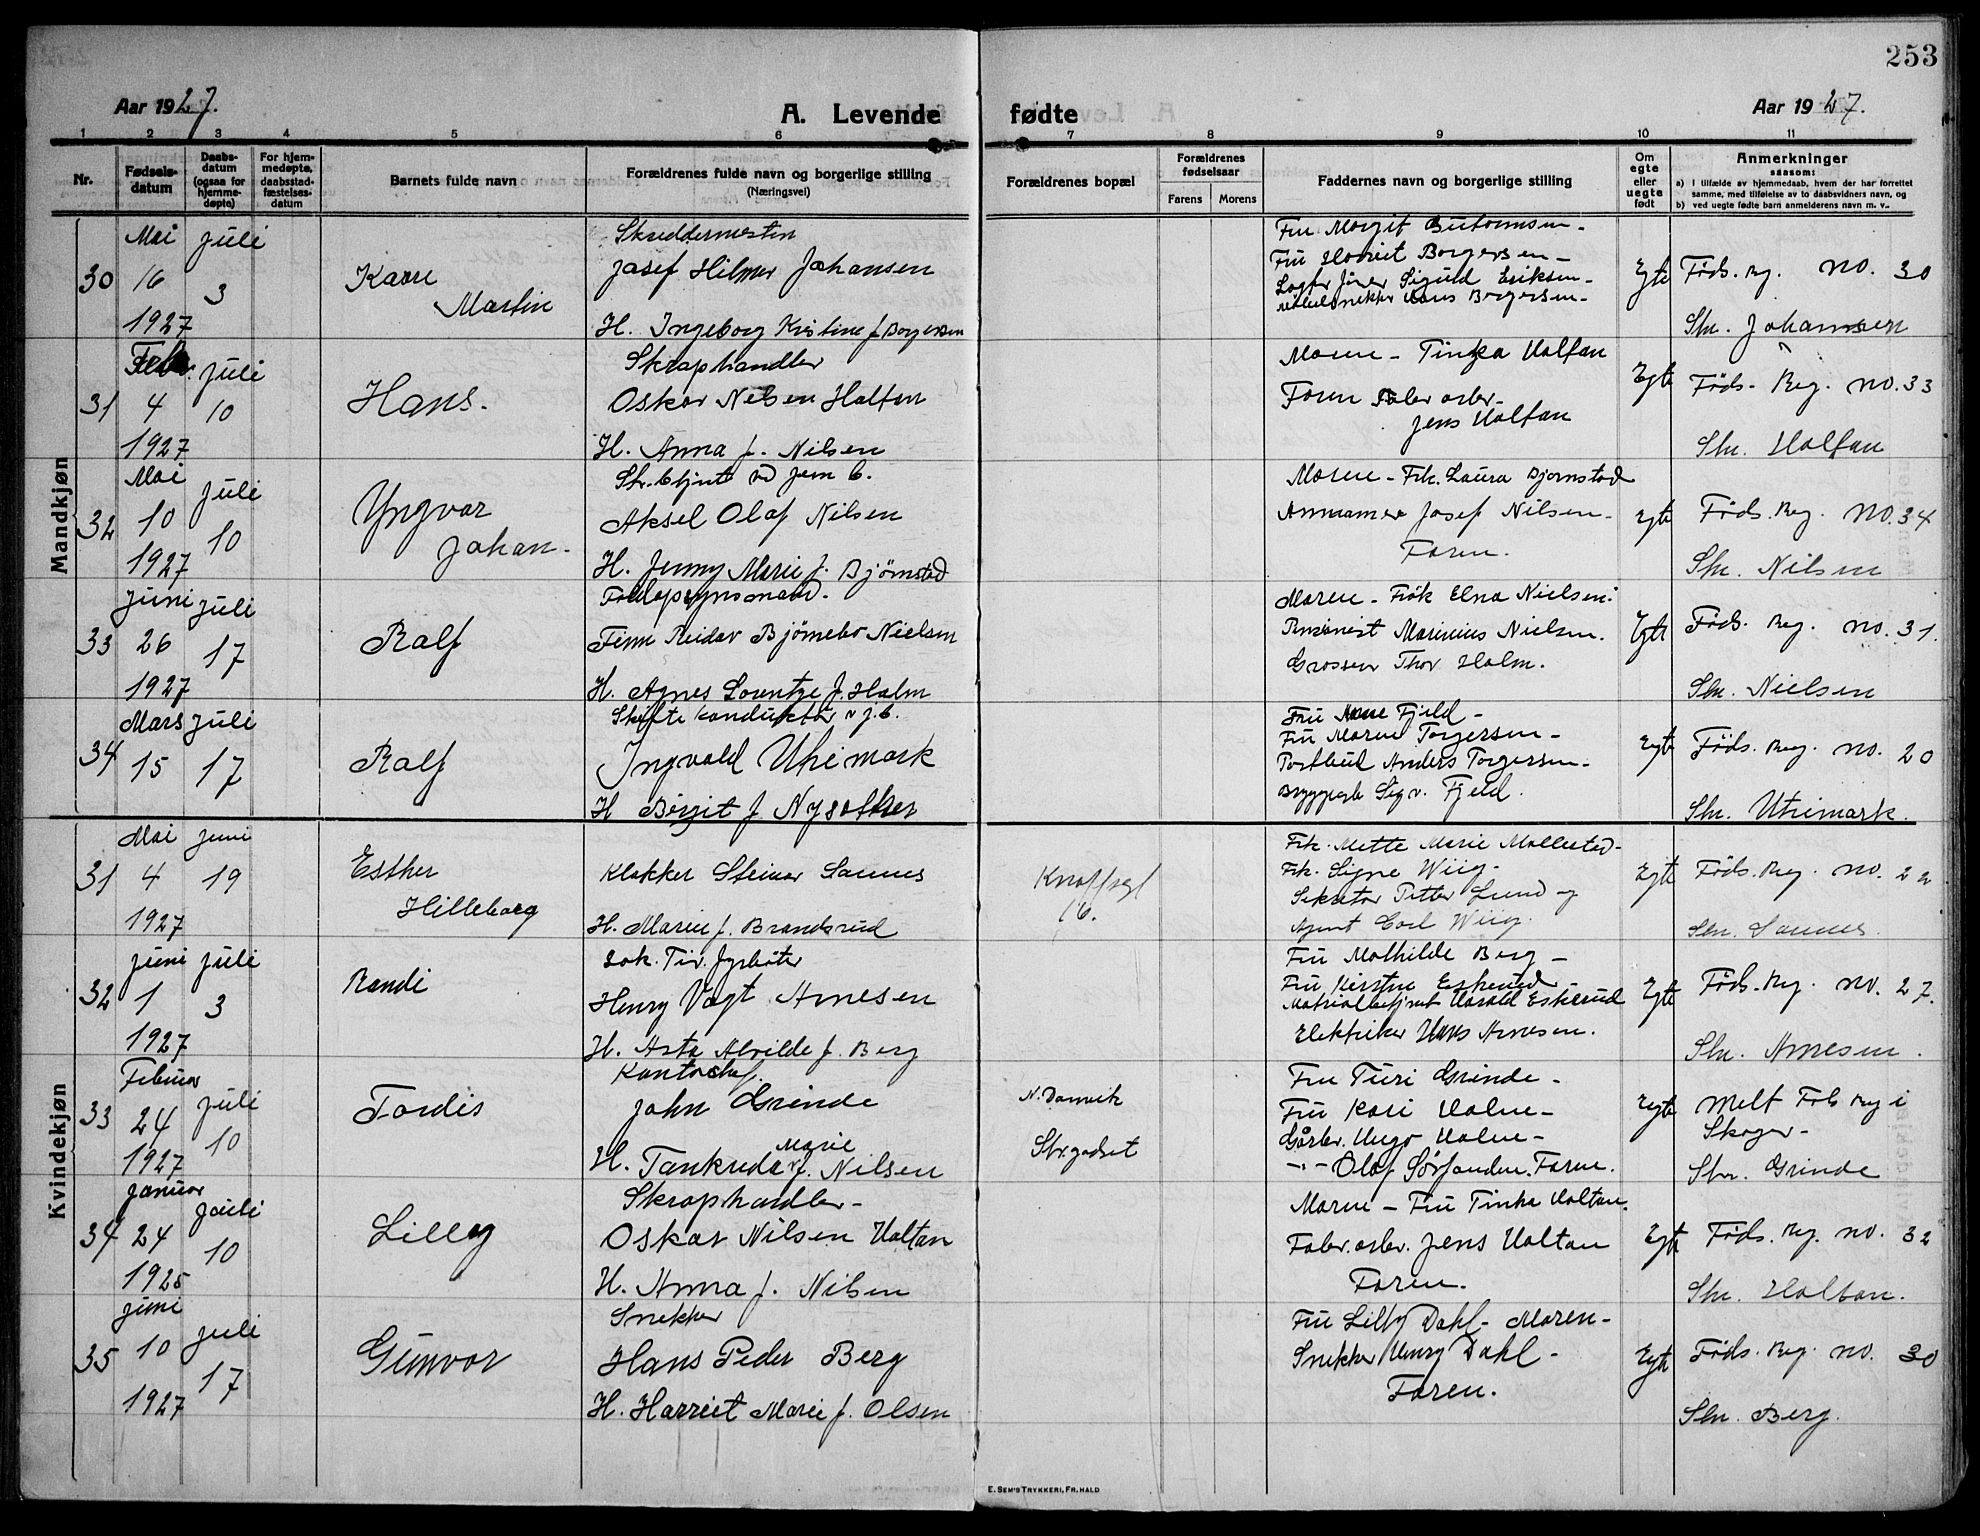 253
Aar 1927.
A. Levende fødte
Aar 1927.
1 2 3 4 5 6 7 8 9 10 11
Nr.
Fødselsdatum
Daabsdatum (ogsaa for hjemmedøpte)
For hjemmedøpte, daabsstadfæstelsesdatum
Barnets fulde navn
Forældrenes fulde navn og borgerlige stilling
(Næringsvei)
Forældrenes bopæl
Forældrenes fødselsaar
Farens Morens
Faddernes navn og borgerlige stilling
Om egte eller uegte født
Anmerkninger
saasom:
a) I tilfælde av hjemmedaab, hvem der har forrettet samme, med tilføielse av to daabsvidners navn, og
b) ved uegte fødte barn anmelderens navn m. v..
Mandkjøn
30
Mai 16 1927
Juli 3
Kaare Martin
Skreddermester
Josef Hilmar Johansen
H. Ingeborg Kristine f. Borgersen
Fru Margit
Fru Harriet Borgersen –
Sigurd Eriksen –
Hans Borgersen –
Egte
Føds. reg. no. 30
Stn. Johansen
31
Febr. 4 1927
Juli 10
Hans.
Skraphandler
Oskar Nilsen Holtan
H. Anna f. Nilsen
Moren – Tinka Holtan
Faren Fabr. arbr.
Jens Holtan
Egte
Føds. Reg. no. 33
Stn. Holtan
32
Mai 10 1927
Juli 10
Yngvar Johan –
Aksel Olaf Nilsen
H. Jenny Marie f. Bjørnstad
Moren – Frk. Laura Bjørnstad
Josef Nilsen –
Faren.
Egte
Føds. Reg. no. 34
Stn. Nilsen
33
Juni 26 1927
Juli 17
Ralf
Finn Reidar Bjørnebo Nielsen
H. Agnes Lorentze f. Holm
Moren – Frøk Elna Nielsen.
Marinius Nielsen.
Grosserer Thor Holm.
Egte
Føds. Reg. no. 31.
Stn. Nielsen
34
Mars 15
Juli 17
Ralf
Skiftekonduktør v j. b.
Ingvald Utnemark
H Birgit f
Fru Fjeld –
Fru Marie Torgersen –
Postbud Anders Torgersen –
Sigv. Fjeld.
Egte
Føds. Reg. no. 20
Stn. Utnemark.
Kvindekjøn
31
Mai 4 1927
Juni 19
Esther Hilleborg
Klokker Steinar Sannes
H. Marie f. Brandsrud
16.
Frk. Mette Marie Mollestad –
Frk. Signe Wiig –
Sekretær Petter Lund og
Agent Carl Wiig.
Egte
Føds. Reg. no. 22
Stn. Sannes.
32
Juni 1 1927
Juli 3
Randi
Lok. Tir. fyrbøter
Henry Vogt Arnesen
H. Asta Alvilde f. Berg
Fru Mathilde Berg –
Fru Kirstine Eskerud –
Harald Eskerud
Elektriker Hans Arnesen.
Egte
Føds. Reg. no. 27.
Stn. Arnesen.
33
Februar 24 1927
Juli 10
Tordis
Kontorchef.
John Grinde
H. Tankreda Marie f. Nilsen
N. Danvik
Strgodset
Fru Turi Grinde –
Fru Kari Holne –
Gårbr. Hugo Holne –
– " – Olaf Faren.
Egte
Melt Føds Reg i
Skoger –
Stn. Grinde
34
Januar 24 1925
Juli 10
Lilly
Skraphandler –
Oskar Nilsen Holtan
H. Anna f. Nilsen
Moren – Fru Tinka Holtan.
Fabr. arbr. Jens Holtan
Faren.
Egte
Føds. Reg. no. 32
Stn. Holtan.
35
Juni 10 1927
Juli 17
Gunvor
Snekker
Hans Peder Berg
H. Harriet Marie f. Olsen
Fru Lilly Dahl – Moren –
Snekker Henry Dahl –
Faren.
Egte
Føds. Reg. no. 30
Stn. Berg.
E. SEM'S TRYKKERI, FR. HALD